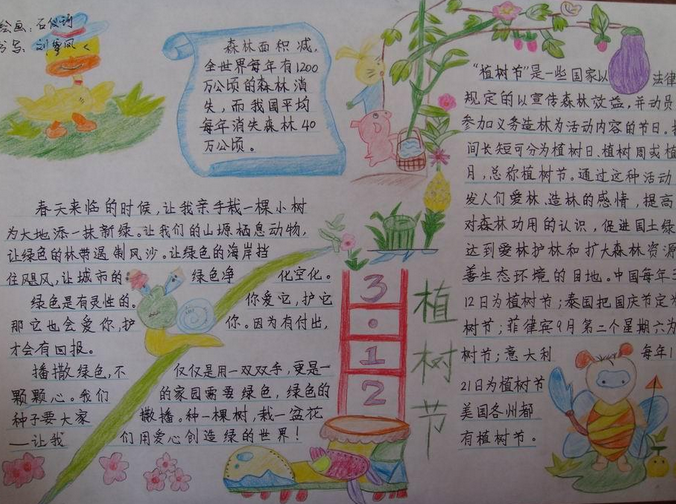 绘画:石俊
书写:刘
森林面积减,
全世界每年有1200
万公顷的森林消
失,而我国平均
每年消失森林40
万公顷。
春天来临的时候,让我亲手栽一棵小树
为大地添一抹新绿。让我们的山塬栖息动物,
让绿色的林带遏制风沙。让绿色的海岸挡
住飓风,让城市的 绿色净 化空化。
绿色是有灵性的。 你爱它,护它
那它也会爱你,护 你。因为有付出,
才会有回报。
播撒绿色,不 仅仅是用一双双手,更是一
颗颗心。我们 的家园需要绿色,绿色的
种子要大家 撒播。种一棵树,栽一盆花
——让我 们用爱心创造绿的世界!
3·12
植树节
“植树节”是一些国家以 法律
规定的以宣传森林效益,并动员
参加义务造林为活动内容的节日。按
间长短可分为植树日、植树周或植
月,总称植树节。通过这种活动
发人们爱林、造林的感情,提高
对森林功用的认识,促进国土绿
达到爱林护林和扩大森林资源
善生态环境的目地。中国每年3
12日为植树节;泰国把国庆节定为
树节;菲律宾9月第二个星期六为
树节;意大利 每年1
21日为植树节
美国各州都
有植树节。